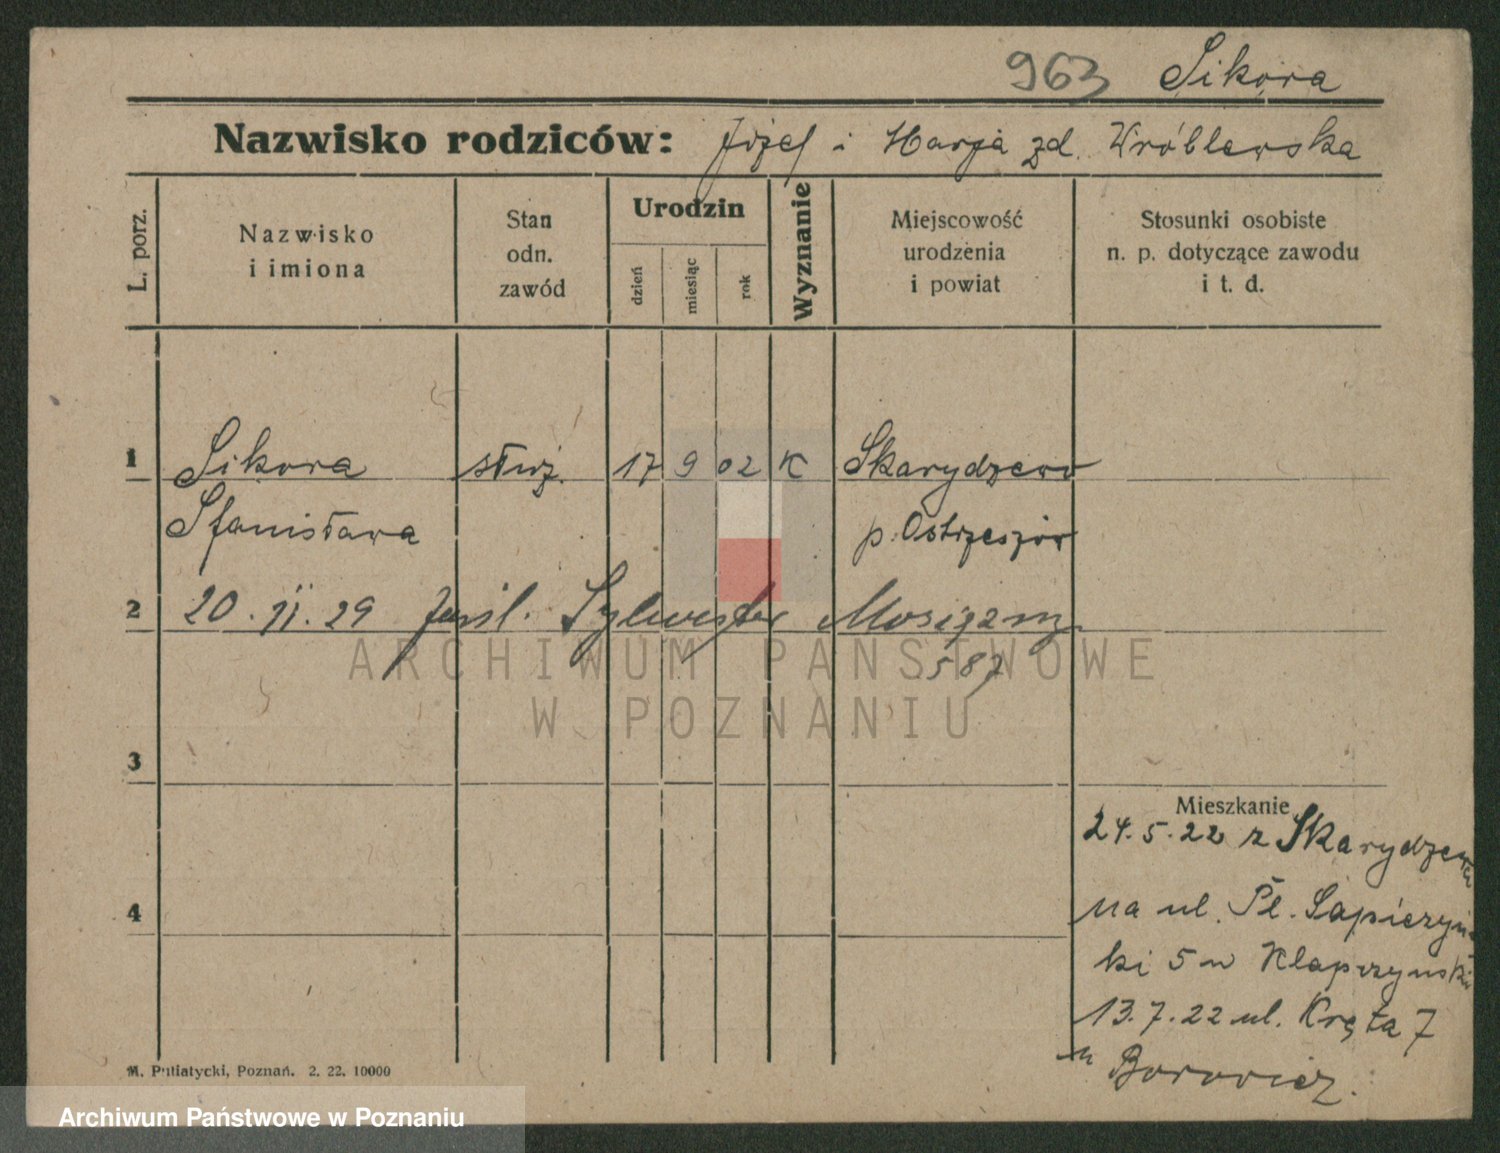 963 Sikora
Nazwisko rodziców: Józef i Marja zd. Wróblewska
L. porz.
Nazwisko
i imiona
Stan
odn.
zawód
Urodzin
dzień
miesiąc
rok
Wyznanie
Miejscowość
urodzenia
i powiat
Stosunki osobiste
n. p. dotyczące zawodu
i t. d.
1 Sikora służ. 17 9 02 K Skarydzewo
Stanisława p. Ostrzeszów
2 20.11.29 Sylwester
587
ARCHIWUM PAŃSTWOWE
W POZNANIU
3
Mieszkanie
24.5.22 z Skarydzewa
4 na ul. Pl. Sapieżyń
ki 5 u Klapczyński
13.7.22 ul. Kręta 7
u Borowicz.
M. Putiatycki, Poznań. 2. 22. 10000
Archiwum Państwowe w Poznaniu